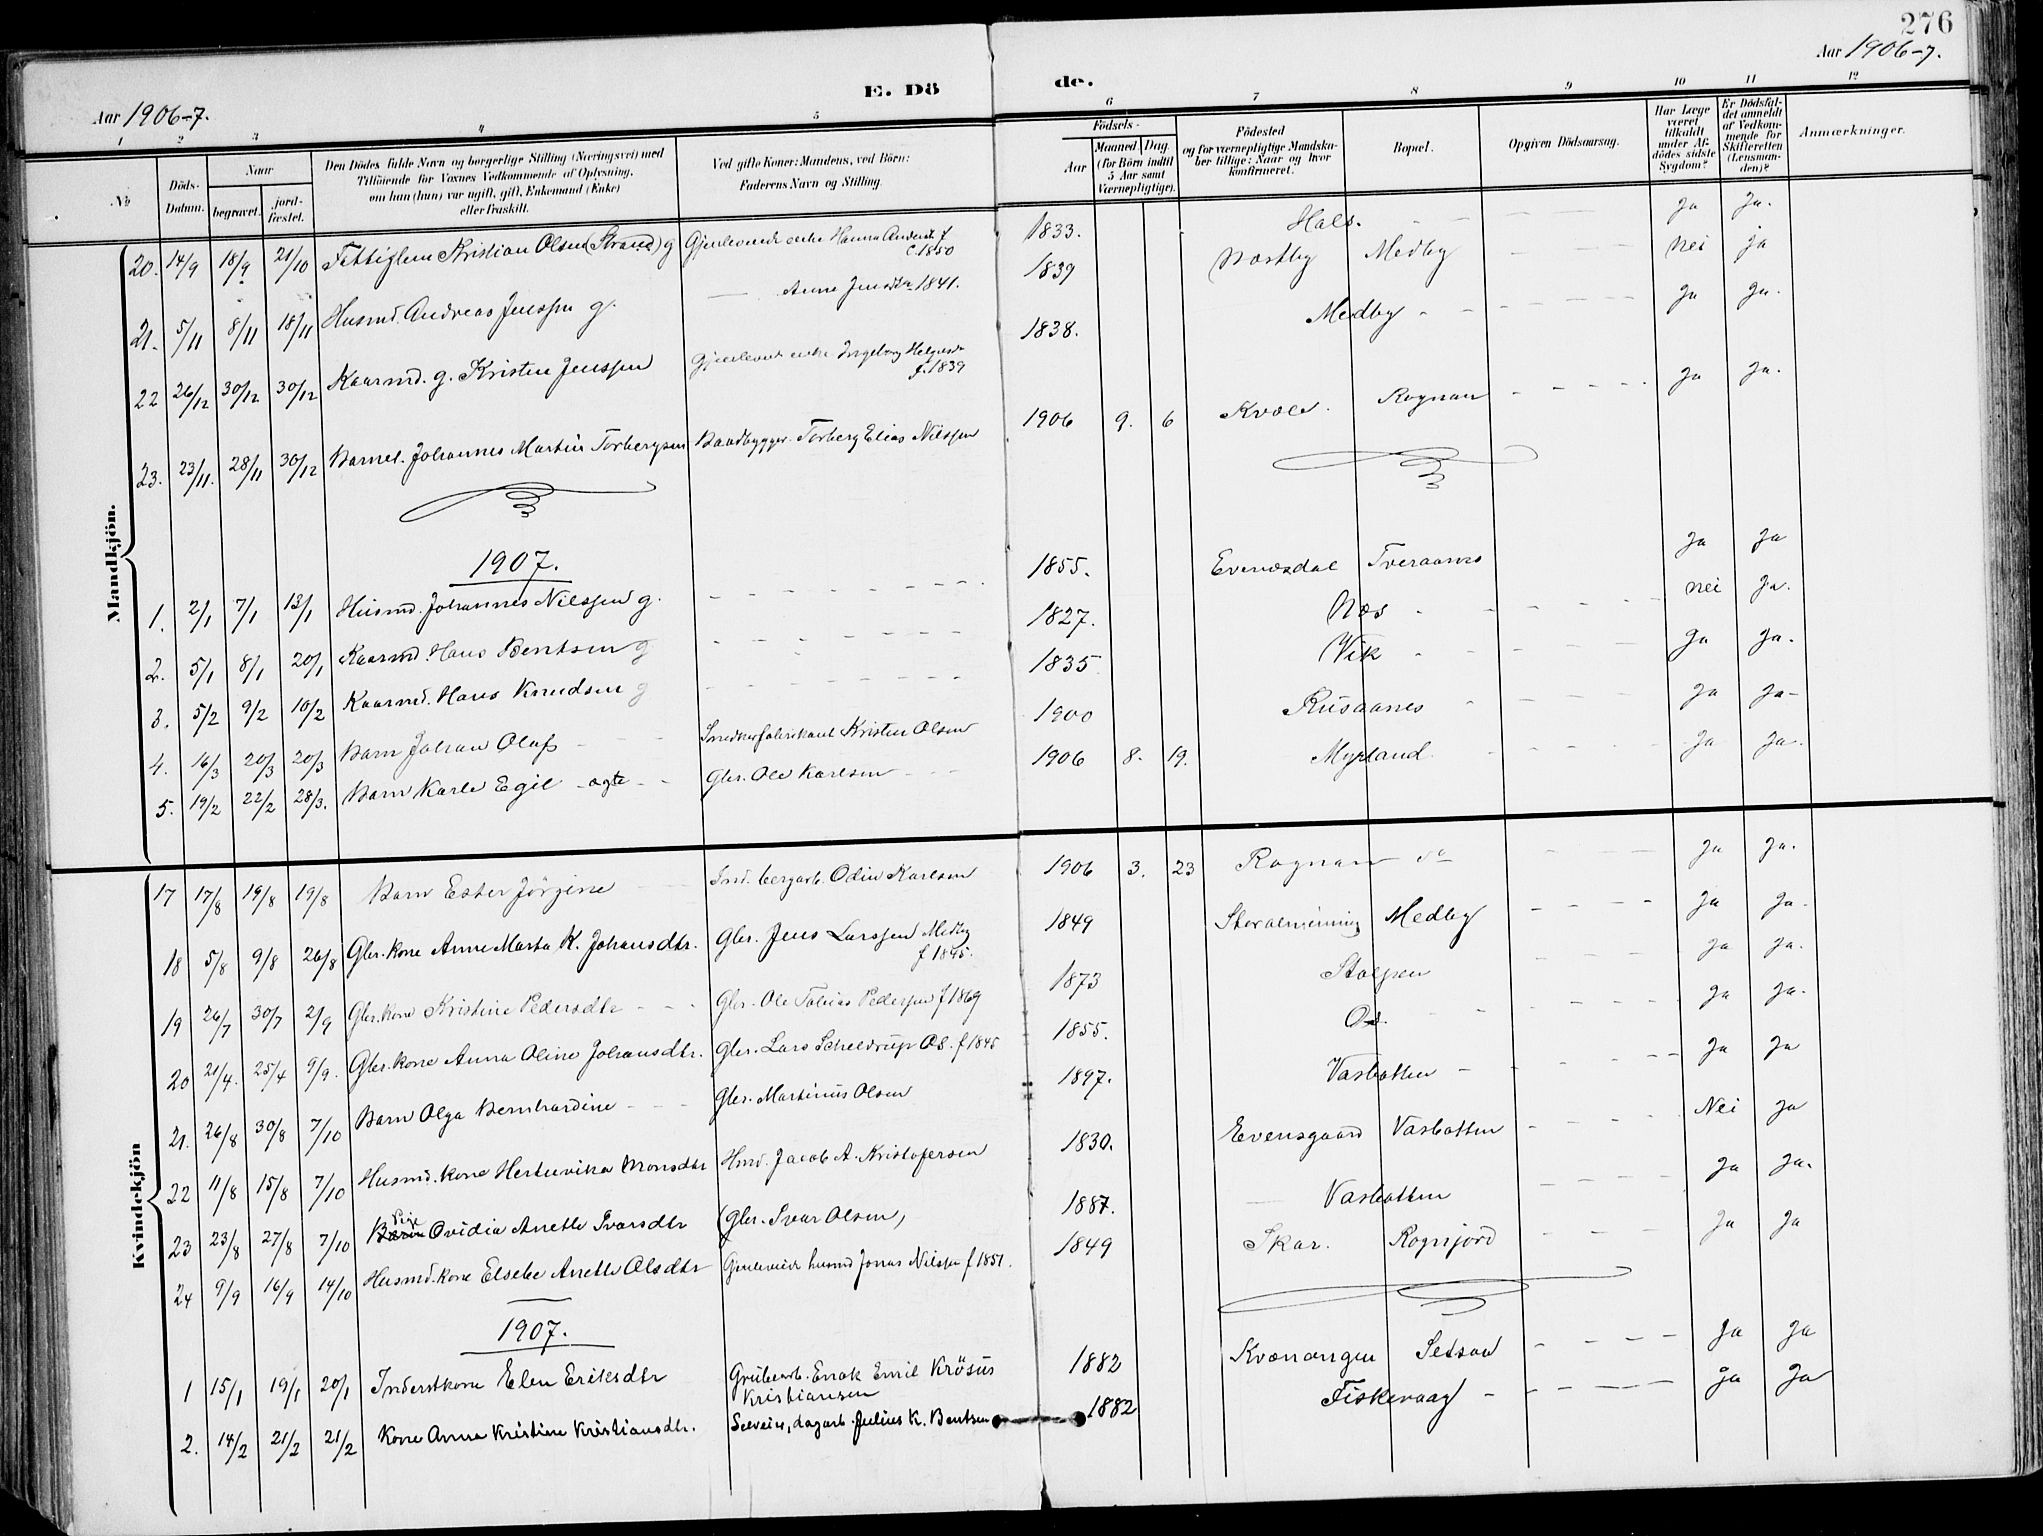 276
Aar 1906-7.
Aar 1906-7.
E. Dö de.
1 2 3 4 5 6 7 8 9 10 11 12
№
Döds-Datum.
Naar
begravet.
jord-fæstet.
Den Dödes fulde Navn og borgerlige Stilling (Næringsvei) med
Tilföiende for Voxnes Vedkommende af Oplysning,
om han (hun) var ugift, gift, Enkemand (Enke)
eller fraskilt.
Ved gifte Koner: Mandens, ved Börn:
Faderens Navn og Stilling.
Födsels-
Aar
Maaned. Dag.
(for Börn indtil
5 Aar samt
Værnepligtige).
Födested
og for værnepligtige Mandska-
ber tillige: Naar og hvor
konfirmeret.
Bopæl.
Opgiven Dödsaarsag.
Har Læge
været
tilkaldt
under Af-
dödes sidste
Sygdom?
Er Dödsfal-
det anmeldt
af Vedkom-
mende for
Skifteretten
(Lensman-
den)?
Anmærkninger.
Mandkjön.
20. 14/9 18/9 21/10 Fattiglem Kristian Olsen (Strand) g Gjenlevende enke Hanna Andersd. f c. 1850 1833. Hals. Ja Ja.
21. 5/11 8/11 18/11 Husmd. Andreas Jenssen g. Anne Jensdtr. 1841. 1839 Næstby Medby nei ja
22 26/12 30/12 30/12 Kaarmd. g. Kristen Jenssen Gjenlevende enke Ingeborg Helgesdr f. 1839 1838. Medby Ja Ja.
23. 23/11. 28/11 30/12 Barnet. Johannes Martin Torbergsen Baadbygger. Torberg Elias Nilssen 1906 9. 6 Kvæle. Rognan Ja Ja.
1907.
1. 2/1 7/1 13/1 Husmd. Johannes Nilssen g. 1855. Evenesdal Tveraanes Ja Ja
2. 5/1 8/1 20/1 Kaarmd. Hans Bentsen g 1827. Næs nei Ja.
3. 5/2 9/2 10/2 Kaarmd. Hans Knudsen g 1835 Vik Ja Ja.
4. 16/3 20/3 20/3 Barn Johan Olaf Snedkerfabrikant Kristen Olsen 1900 Rusaanes Ja Ja
5. 19/2 22/2 28/3. Barn Karle Egil ægte Gbr. Ole Karlsen 1906 8. 19. Myrland Ja Ja.
Kvindekjön
17 17/8 19/8 19/8 Barn Ester Jörgine Ind. bergarb. Odin Karlsen 1906 3. 23 Rognan do Ja Ja.
18 5/8 9/8 26/8 Gbr. kone Anne Marta K. Johansdtr. Gbr. Jens Larssen Medby f 1845. 1849 Storalmenning Medby Ja Ja.
19 26/7 30/7 2/9 Gbr. kone Kristine Pedersdtr Gbr. Ole Tobias Pedersen f 1869 1873 Stolpen Ja Ja.
20 21/4. 25/4 9/9. Gbr. kone Anna Oline Johansdtr. Gbr. Lars Scheldrup Os. f 1845 1855. Os. Ja Ja.
21. 26/8 30/8 7/10 Barn Olga Bernhardine Gbr. Martinus Olsen 1897. Vasbotten Ja Ja
22 11/8 15/8 7/10 Husmd. kone Hertevika Monsdtr Hmd. Jacob A. Kristofersen 1830. Evensgaard Vasbotten Nei Ja
23 23/8 27/8 7/10 Pige Ovidia Anette Ivarsdtr (Gbr. Ivar Olsen) 1887. Vasbotten Ja Ja.
24 9/9 16/9 14/10 Husmd. kone Elsebe Anette Olsdtr Gjenlevende husmd Jonas Nilssen f 1851. 1849 Skar. Rognfjord Ja Ja
1907.
1 15/1 19/1 20/1 Inderstkone Elen Eriksdtr Grubearb. Enok Emil Krösus Kristiansen 1882 Kvænangen Setsaa Ja Ja
2. 14/2 21/2 21/2 Kone Anna Kristine Kristiansdtr. Selveier, dagarb. Julius K. Bentsen 1882 Fiskevaag Ja Ja